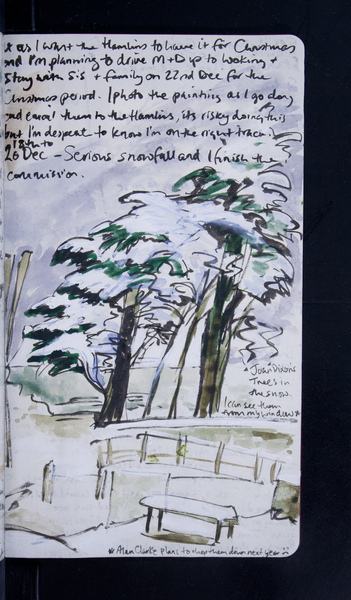 & as I want the Hamlins to have it for Christmas
and I'm planning to drive M+D up to Woking &
Stay with Sis & family on 22nd Dec for the
Christmas period. I photo the painting as I go along
and email them to the Hamlins, its risky doing this
but I'm desperate to know I'm on the right track.
18th to
26 Dec – Serious snowfall and I finish the
commission.
Joan Dixons
Trees in
the snow.
I can see them
from my window*
* Alan Clarke plans to chop them down next year